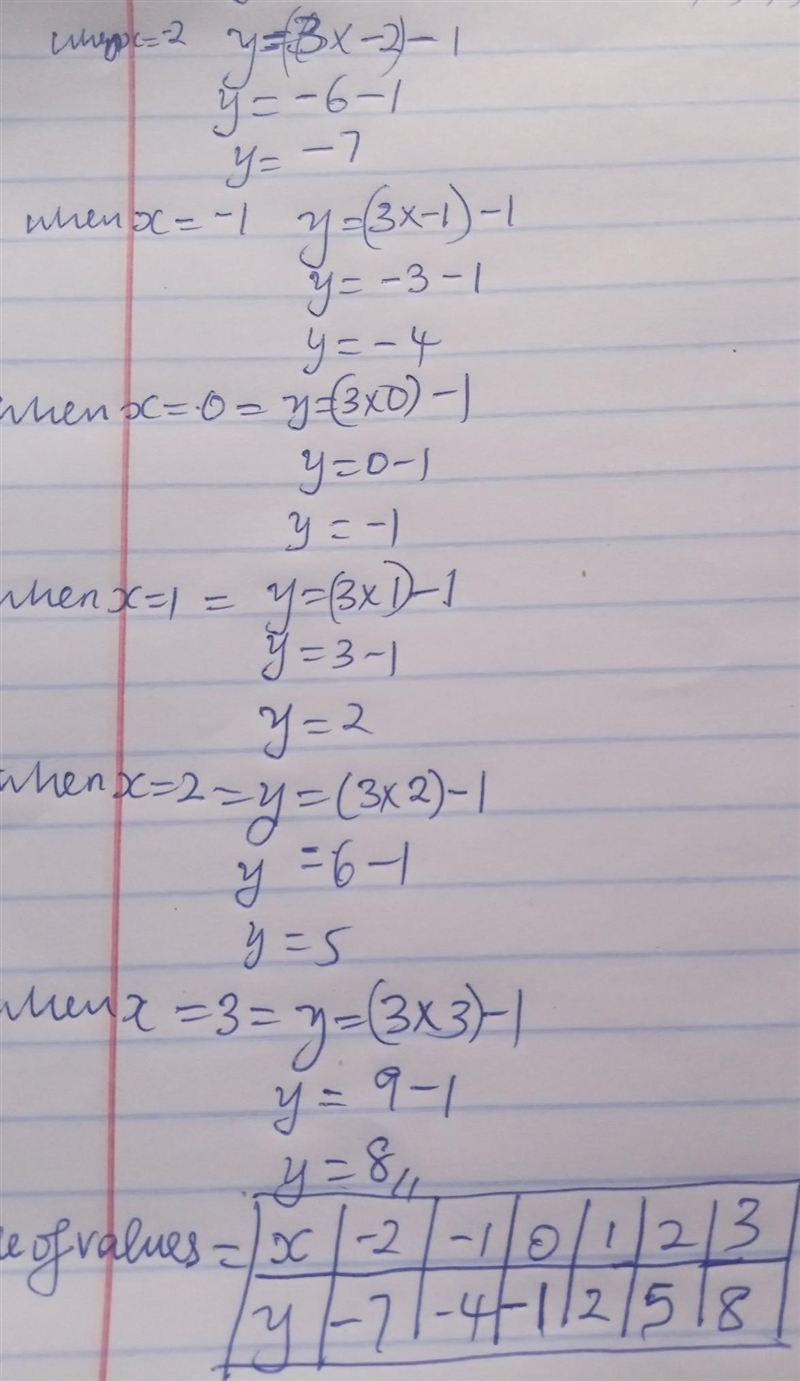 when x=-2 y=(3x-2)-1
y=-6-1
y=-7
when x=-1 y=(3x-1)-1
y=-3-1
y=-4
when x=0= y=(3x0)-1
y=0-1
y=-1
when x=1= y=(3x1)-1
y=3-1
y=2
when x=2=y=(3x2)-1
y=6-1
y=5
when x=3=y=(3x3)-1
y=9-1
y=8
of values = x -2 -1 0 1 2 3
y -7 -4 -1 2 5 8